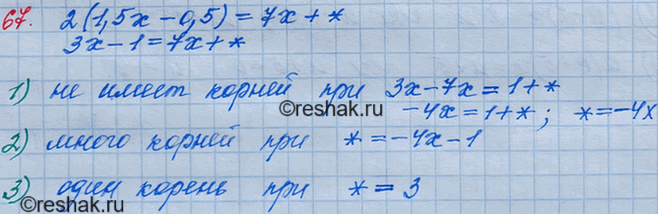 67. 2(1,5x - 0,5) = 7x + *
3x - 1 = 7x + *
1) не имеет корней при 3x - 7x = 1 + *
©reshak.ru
-4x = 1 + *; * = -4x
2) много корней при * = -4x - 1
3) один корень при * = 3